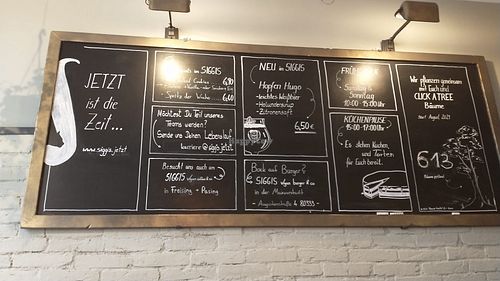 JETZT
ist die
Zeit...
www.siggis.jetzt
im SIGGIS
und Cookies
6,90
Spritz der Woche
6,00
Möchtest Du Teil unseres
Teams werden?
Sende uns Deinen Lebenslauf
karriere@siggis.jetzt
Besucht uns auch im
SIGGIS
in Freising + Pasing
NEU im SIGGIS
Hopfen Hugo
-leichtes Weißbier
-Holundersirup
-Zitronensaft
6,50€
Bock auf Burger?
SIGGIS vegan burger & co
in der Maxvorstadt
- Augustenstraße 4 80333 -
Sonntag
10:00 - 15:00 Uhr
KÜCHENPAUSE
15:00 - 17:00 Uhr
Es stehen Kuchen
und Torten
für Euch bereit.
Wir pflanzen gemeinsam
mit Euch und
CLICK A TREE
Bäume
seit August 2021
613
Bäume gepflanzt